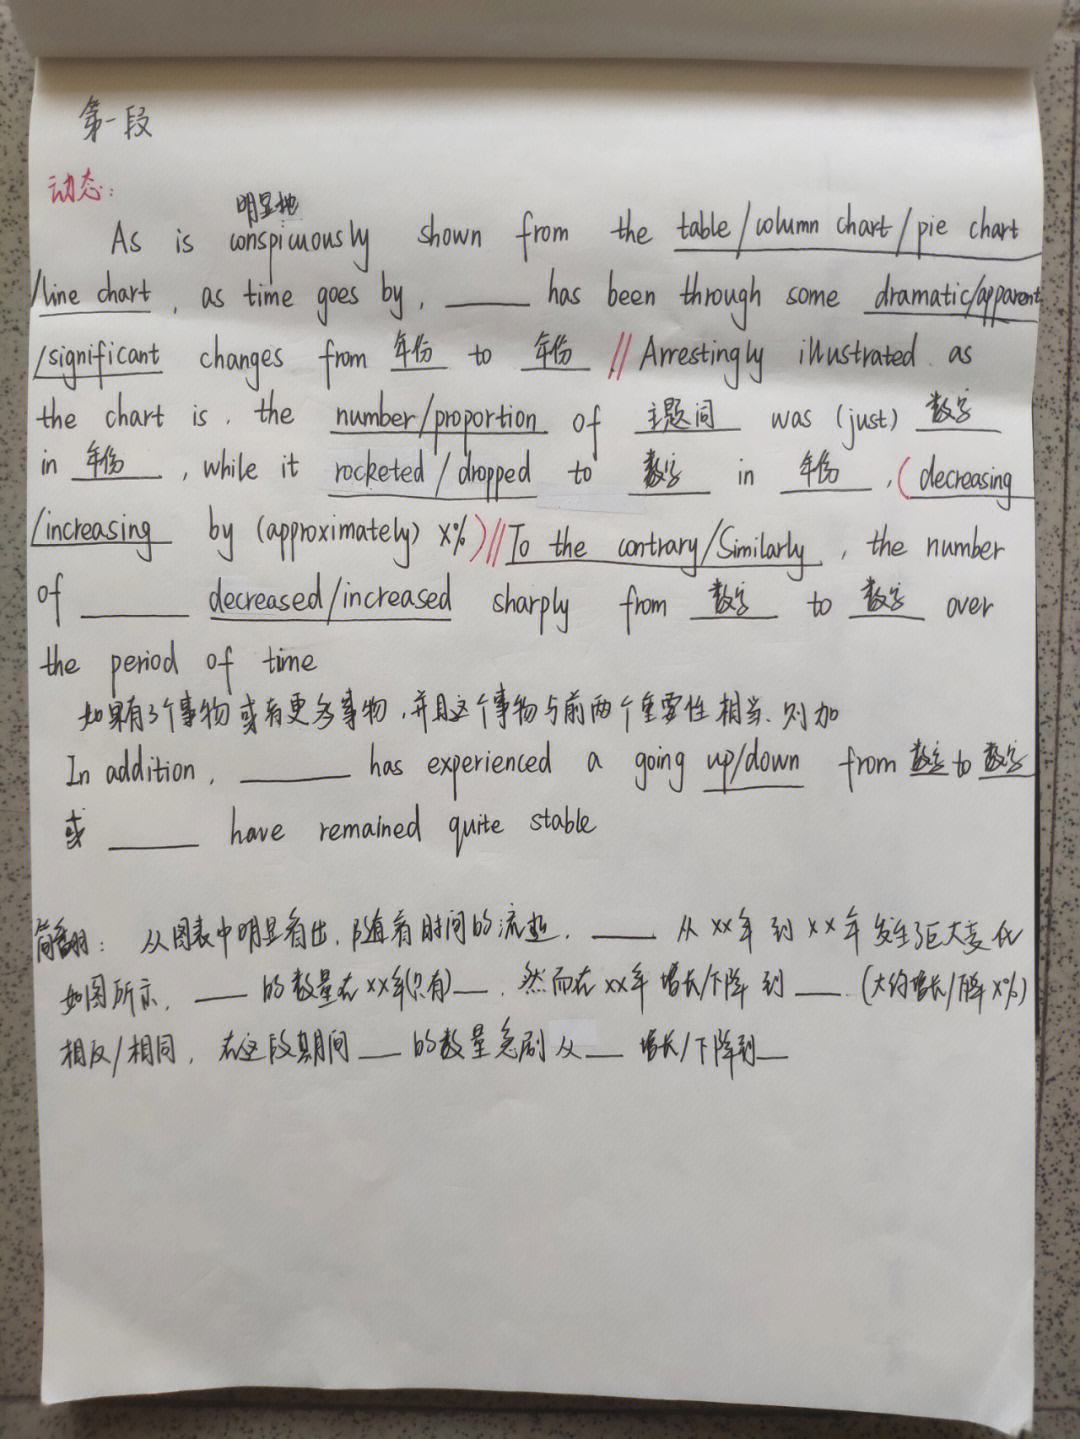 第一段
动态:
明显地
As is conspicuously shown from the table/column chart/pie chart
/line chart, as time goes by, ____ has been through some dramatic/apparent
/significant changes from 年份 to 年份 // Arrestingly illustrated as
the chart is, the number/proportion of 主题词 was (just) 数字
in 年份, while it rocketed/dropped to 数字 in 年份, (decreasing
/increasing by (approximately) X%) // To the contrary/Similarly, the number
of ____ decreased/increased sharply from 数字 to 数字 over
the period of time
如果有3个事物或有更多事物,并且这个事物与前两个重要性相当、则加
In addition, ____ has experienced a going up/down from 数字 to 数字
或 ____ have remained quite stable
简翻: 从图表中明显看出,随着时间的流逝, ____ 从XX年到XX年发生了巨大变化
如图所示, ____ 的数量在XX年(只有)____, 然而在XX年增长/下降到 ____ (大约增长/下降X%)
相反/相同, 在这段期间 ____ 的数量急剧从 ____ 增长/下降到 ____